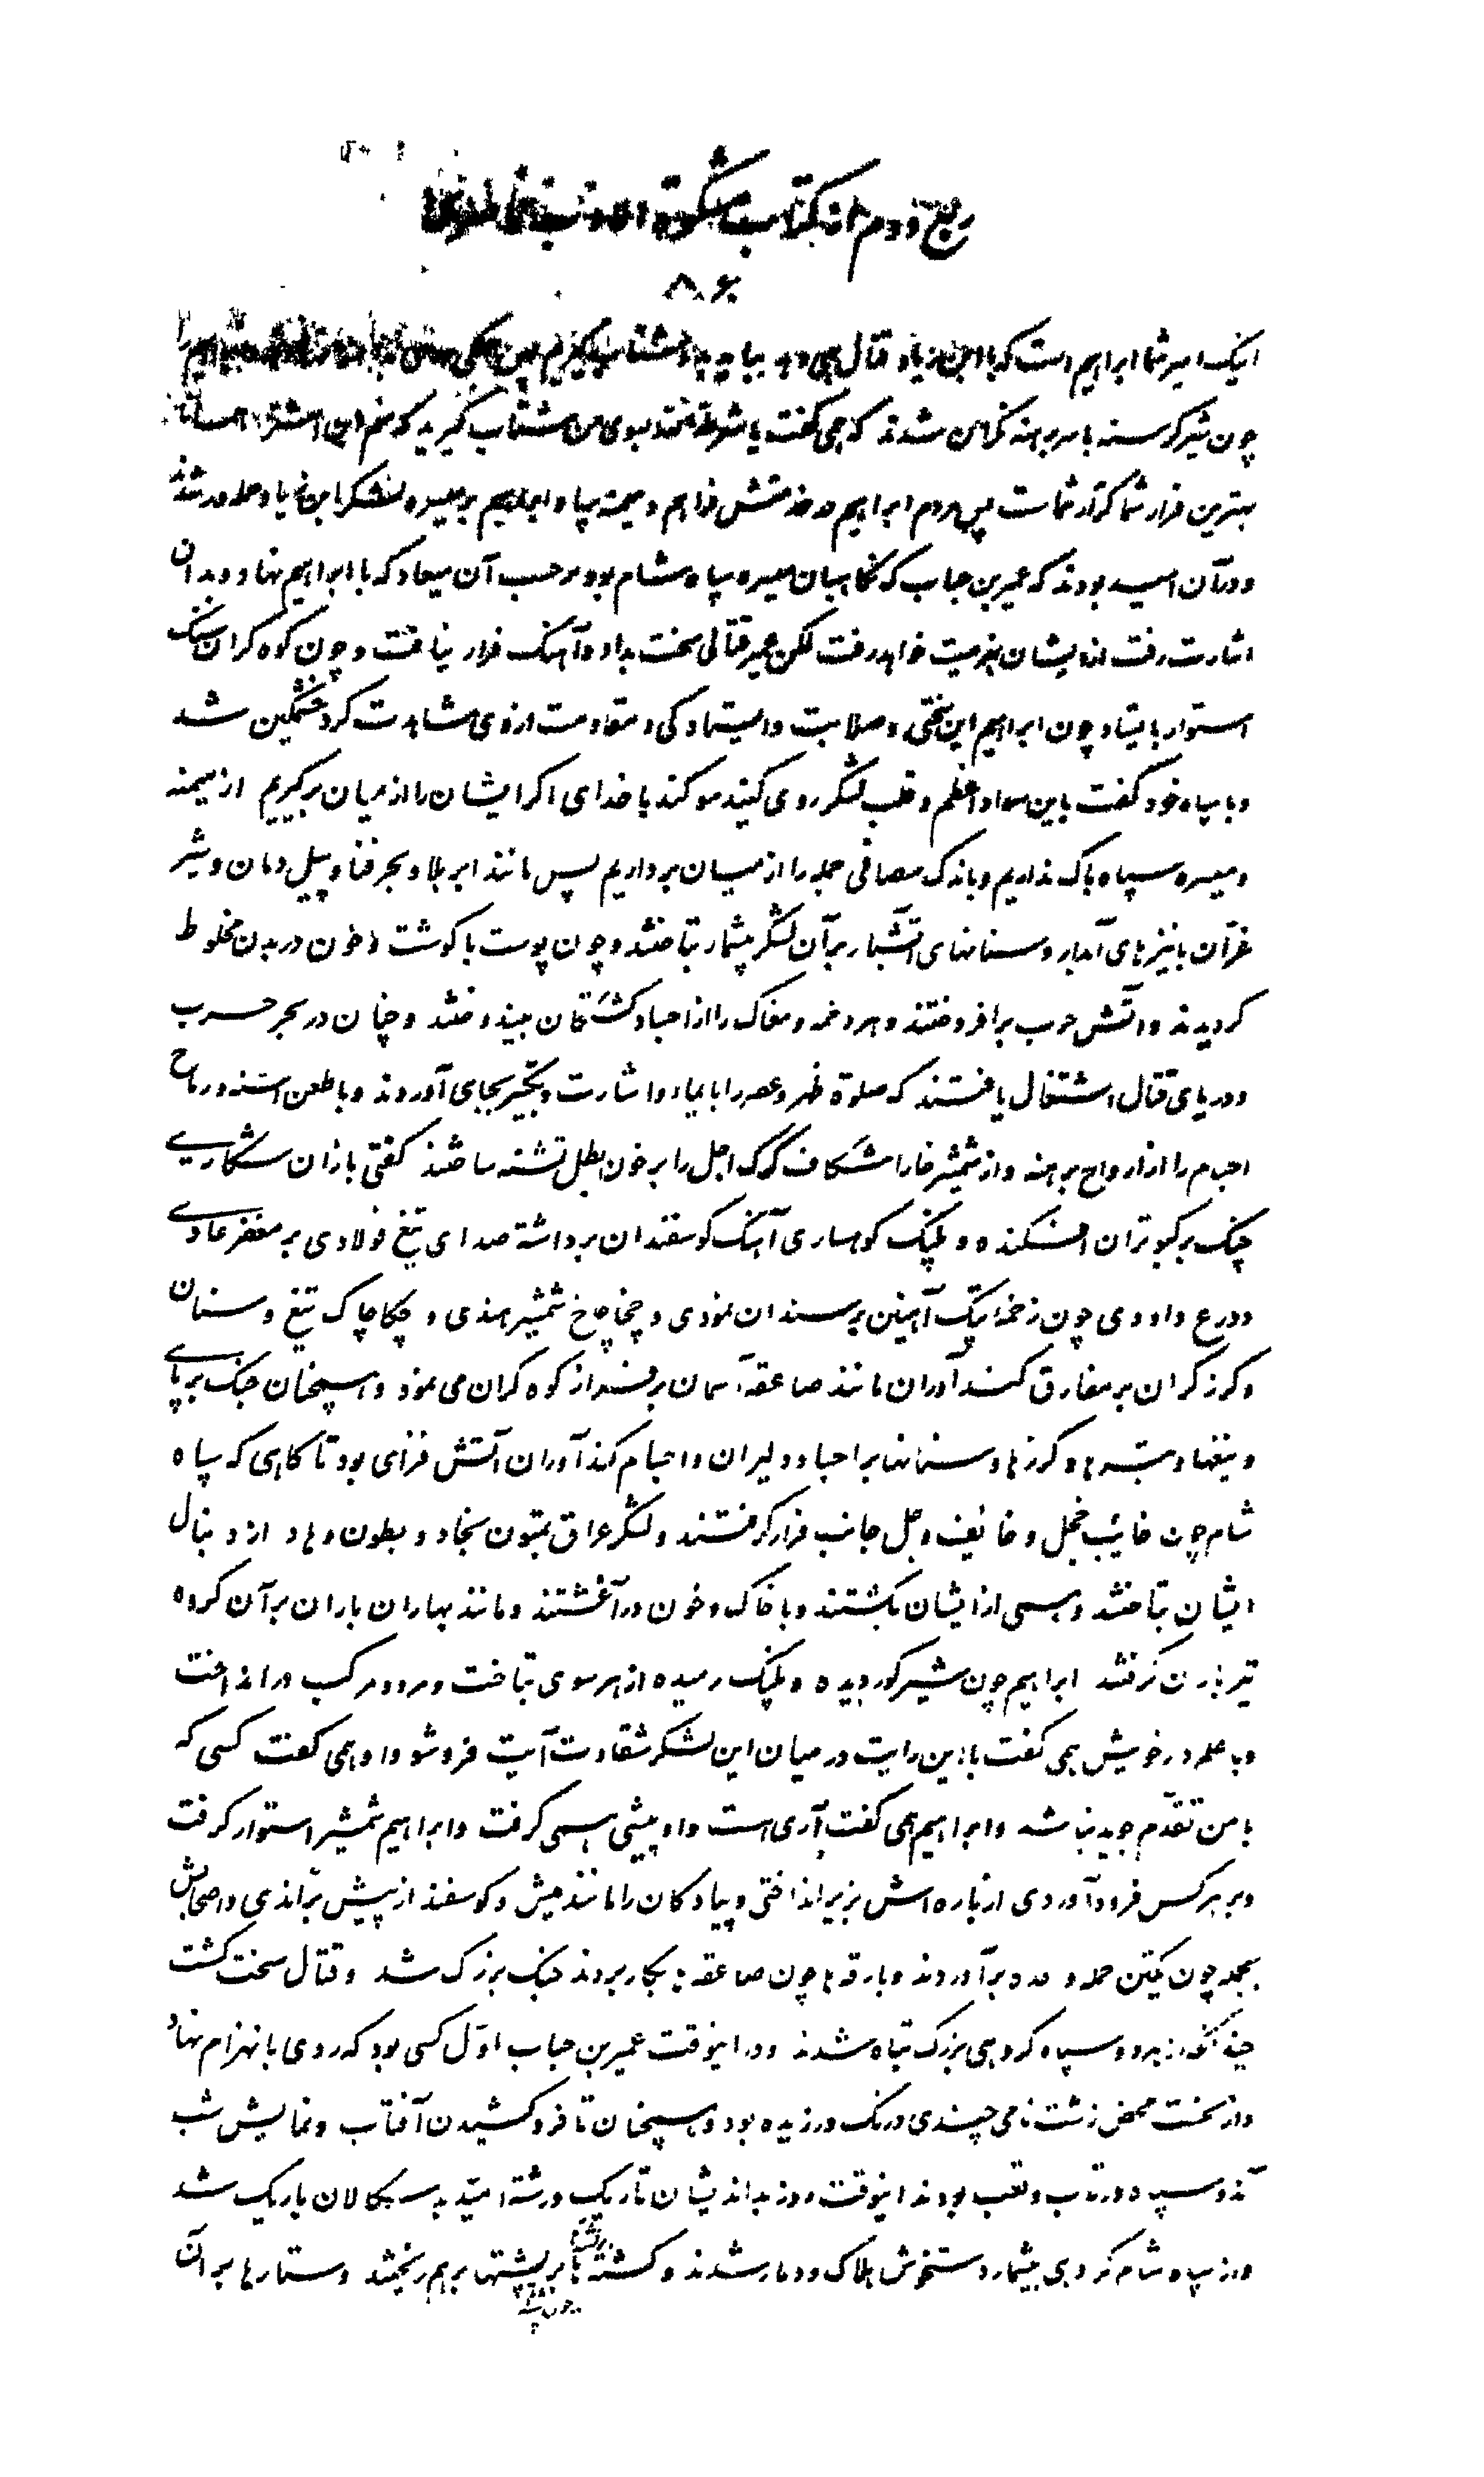 ربع دوم از کتاب مشکوة الادب ناصری
۸۶
اینک امیر شما ابراهیم است که با ابن زیاد قتال همی دهد بیایید بدو شتاب گیریم پس همگی
چون شیر گرسنه با سر برهنه نگران شدند که همی گفت یا شرطة الله بسوی من شتاب گیرید که منم ابن اشتر
بهترین فرار شما کرّار شماست پس مردم ابراهیم در خدمتش فراهم و میمنه سپاه ابراهیم بر میسره لشکر ابن زیاد حمله ور شدند
و در آن امید بودند که عمیر بن حباب که نگاهبان میسره سپاه شام بود بر حسب آن میعاد که با ابراهیم نهاد و بدان
اشارت رفت از ایشان هزیمت خواهد رفت لکن عمیر قتالی سخت بداد و آهنگ فرار نیافت و چون کوه گران سنگ
استوار بایستاد چون ابراهیم این سختی و صلابت و ایستادگی و مقاومت از وی مشاهدت کرد خشمگین شد
و با سپاه خود گفت باین سواد اعظم و قلب لشگر روی کنید سوگند با خدای اگر ایشان را از میان برگیریم از میمنه
و میسره سپاه باک نداریم و باندک مصافی جمله را از میان برداریم پس مانند ابر بلا و بحر فنا و پیل دمان و شیر
غرّان با نیزهای آبدار و سنانهای آتشبار بر آن لشگر بیشمار بتاختند و چون پوست با گوشت و خون در بدن مخلوط
گردیدند و آتش حرب برافروختند و هر دخمه و مغاک را از اجساد کشتگان بیندوختند و چنان در بحر حرب
و دریای قتال اشتغال یافتند که صلوة ظهر و عصر را با ایماء و اشارت و تکبیر بجای آوردند و با طعن اسنه و رماح
اجسام را از ارواح برهنه و از شمشیر خارا شکاف گرگ اجل را بر خون ابطال تشنه ساختند گفتی بازان شکاری
چنگ بر کبوتران افکنده و پلنگ کوهساری آهنگ گوسفندان برداشته صدای تیغ فولادی بر مغفر عادی
و درع داودی چون زخم پتک آهنین بر سندان نمودی و چخاچاخ شمشیر هندی و چکاچاک تیغ و سنان
و گرز گران بر مفارق کندآوران مانند صاعقه آسمان بر فراز کوه گران می نمود و همچنان جنگ برپای
و تیغها و تبرها و گرزها و سنانها بر اجساد دلیران و اجسام کندآوران آتش فزای بود تا گاهی که سپاه
شام چون خائب خجل و خائف وجل جانب فرار گرفتند و لشگر عراق بمتون نجاد و بطون وهاد از دنبال
ایشان بتاختند و بسی از ایشان بکشتند و با خاک و خون درآغشتند و مانند بهاران باران بر آن گروه
تیر باران گرفتند ابراهیم چون شیر گور دیده و پلنگ رمیده از هر سوی بتاخت و مرد و مرکب در انداخت
و با علمدار خویش همی گفت با این رایت در میان این لشکر شقاوت آیت فرو شو و او همی گفت کسی که
با من تقدّم جوید نباشد و ابراهیم همی گفت آری است و او پیشی همی گرفت و ابراهیم شمشیر استوار گرفت
و بر هر کس فرود آوردی از باره اش بزیر انداختی و پیادگان را مانند میش و گوسفند از پیش براندی و اصحابش
بجمله چون یکتن حمله در آوردند و بارقه ها چون صاعقه ها بکار بردند جنگ بزرگ شد و قتال سخت گشت
چندانکه از هر دو سپاه گروهی بزرگ تباه شدند و در اینوقت عمیر بن حباب اوّل کسی بود که روی بانهزام نهاد
و از نخست محض زشت نامی چندی درنگ ورزیده بود و همچنان تا فرو کشیدن آفتاب و نمایش شب
آندو سپاه در تاب و تعب بودند اینوقت روز بداندیشان تاریک و رشته امید بدسگالان باریک شد
و از سپاه شام گروهی بیشمار دستخوش هلاک و دمار شدند و کشته ها بر پشتها بر هم ریختند و ستارها بر آن